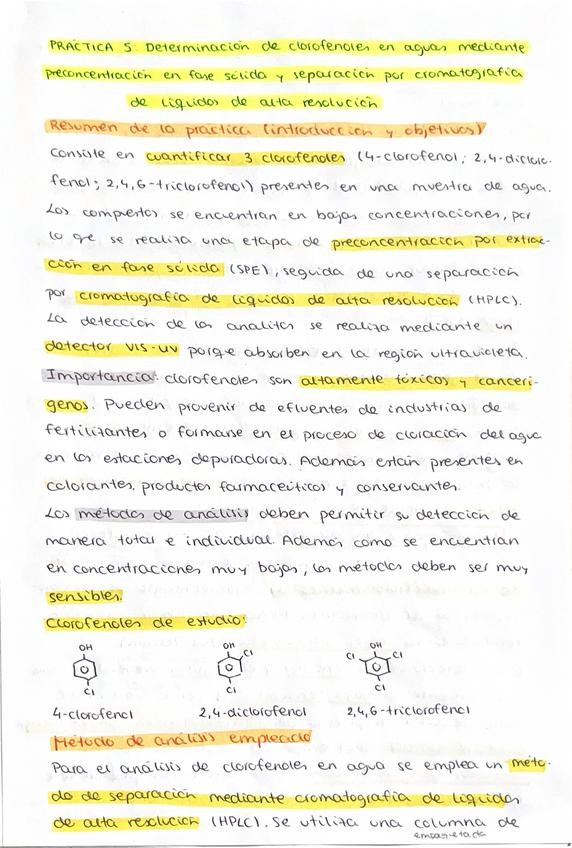 PRÁCTICA 5: Determinación de clorofenoles en aguas mediante
preconcentración en fase sólida y separación por cromatografía
de líquidos de alta resolución
Resumen de la práctica (introducción y objetivos)
Consiste en cuantificar 3 clorofenoles (4-clorofenol; 2,4-dicloro-
fenol; 2,4,6-triclorofenol) presentes en una muestra de agua.
Los compuestos se encuentran en bajas concentraciones, por
lo que se realiza una etapa de preconcentración por extrac-
ción en fase sólida (SPE), seguida de una separación
por cromatografía de líquidos de alta resolución (HPLC).
La detección de los analitos se realiza mediante un
detector VIS-UV porque absorben en la región ultravioleta.
Importancia: clorofenoles son altamente tóxicos y canceri-
genos. Pueden provenir de efluentes de industrias de
fertilizantes o formarse en el proceso de cloración del agua
en las estaciones depuradoras. Además están presentes en
colorantes, productos farmaceúticos y conservantes.
Los métodos de análisis deben permitir su detección de
manera total e individual. Además como se encuentran
en concentraciones muy bajas, los métodos deben ser muy
sensibles.
Clorofenoles de estudio:
OH OH Cl Cl OH Cl
Cl Cl Cl
4-clorofenol 2,4-diclorofenol 2,4,6-triclorofenol
Método de análisis empleado
Para el análisis de clorofenoles en agua se emplea un méto-
do de separación mediante cromatografía de líquidos
de alta resolución (HPLC). Se utiliza una columna de
empaquetada